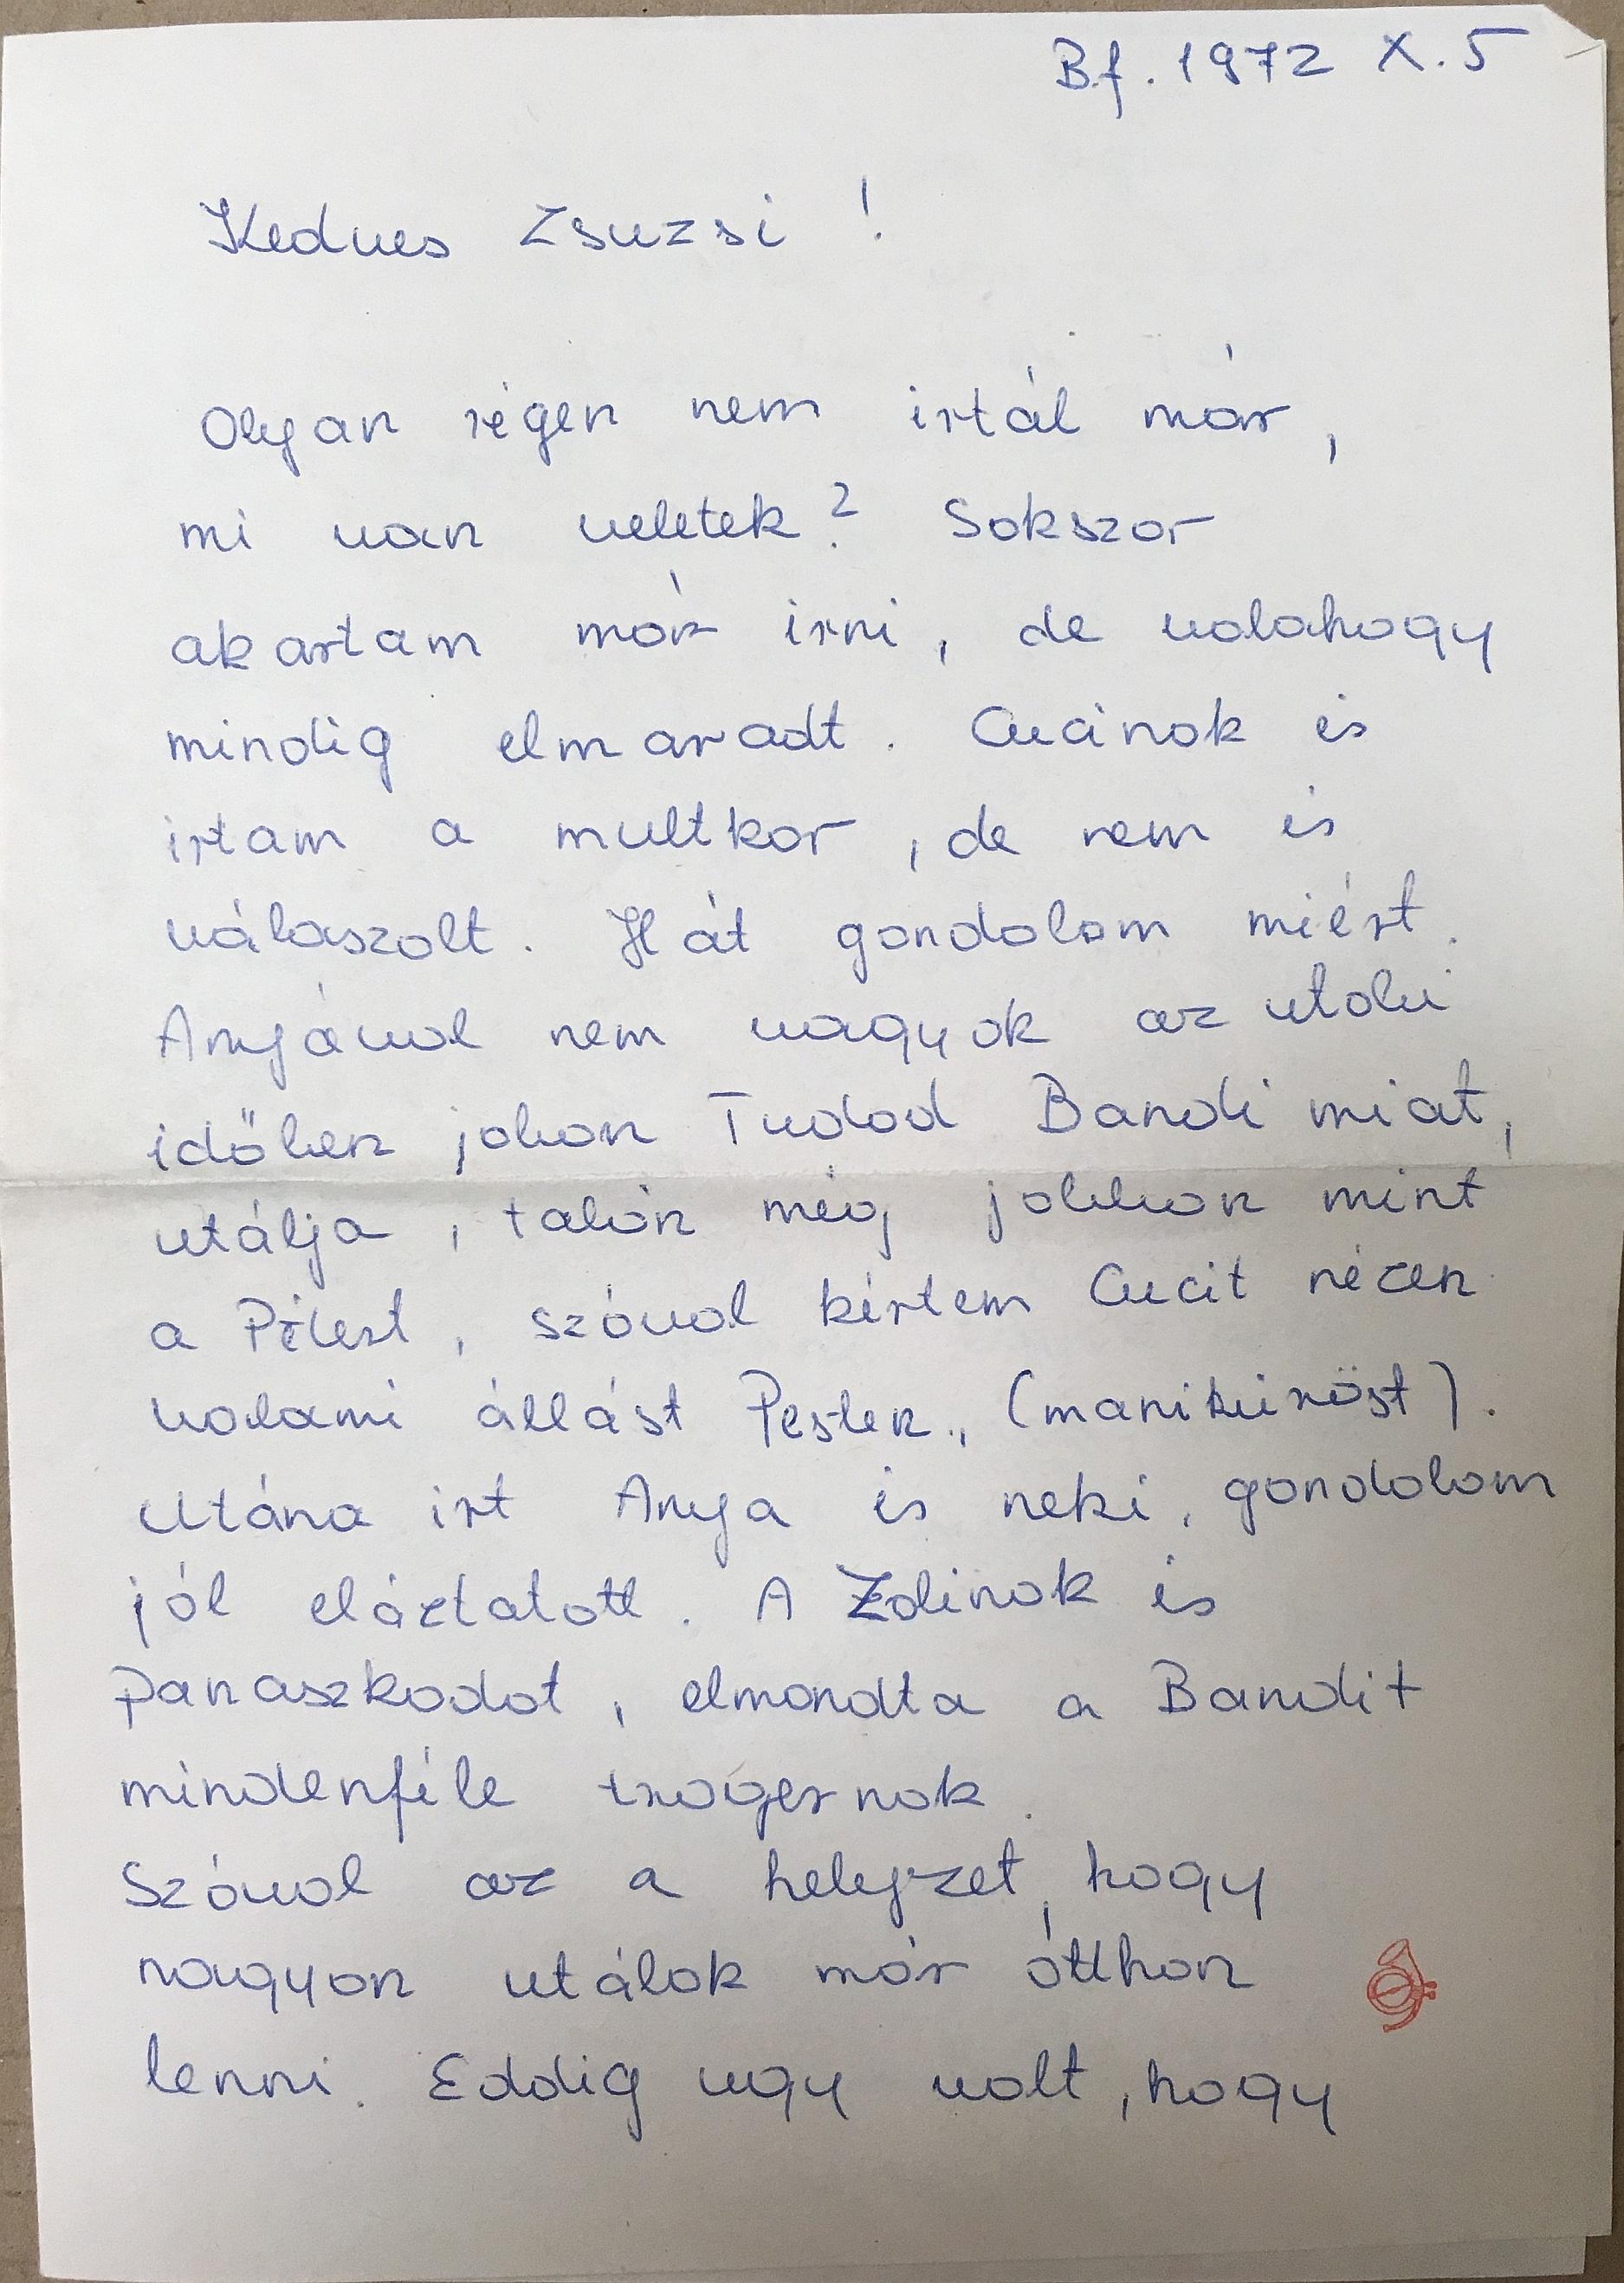 B.f. 1972 X. 5
Kedves Zsuzsi !
Olyan régen nem irtál már,
mi van veletek? Sokszor
akartam már irni, de valahogy
mindig elmaradt. Cucinak is
irtam a multkor, de nem is
válaszolt. Hát gondolom miért.
Anyával nem vagyok az utolsi
időben joban Tudod Bandi miat,
utálja, talán még jobban mint
a Pétert, szóval kértem Cucit nézen
valami állást Pesten., (manikűröst).
Utána irt Anya is neki, gondolom
jól eláztatott. A Zolinak is
panaszkodot, elmondta a Bandit
mindenféle trógernak.
Szóval az a helyzet, hogy
nagyon utálok már ótthon
lenni. Eddig ugy volt, hogy